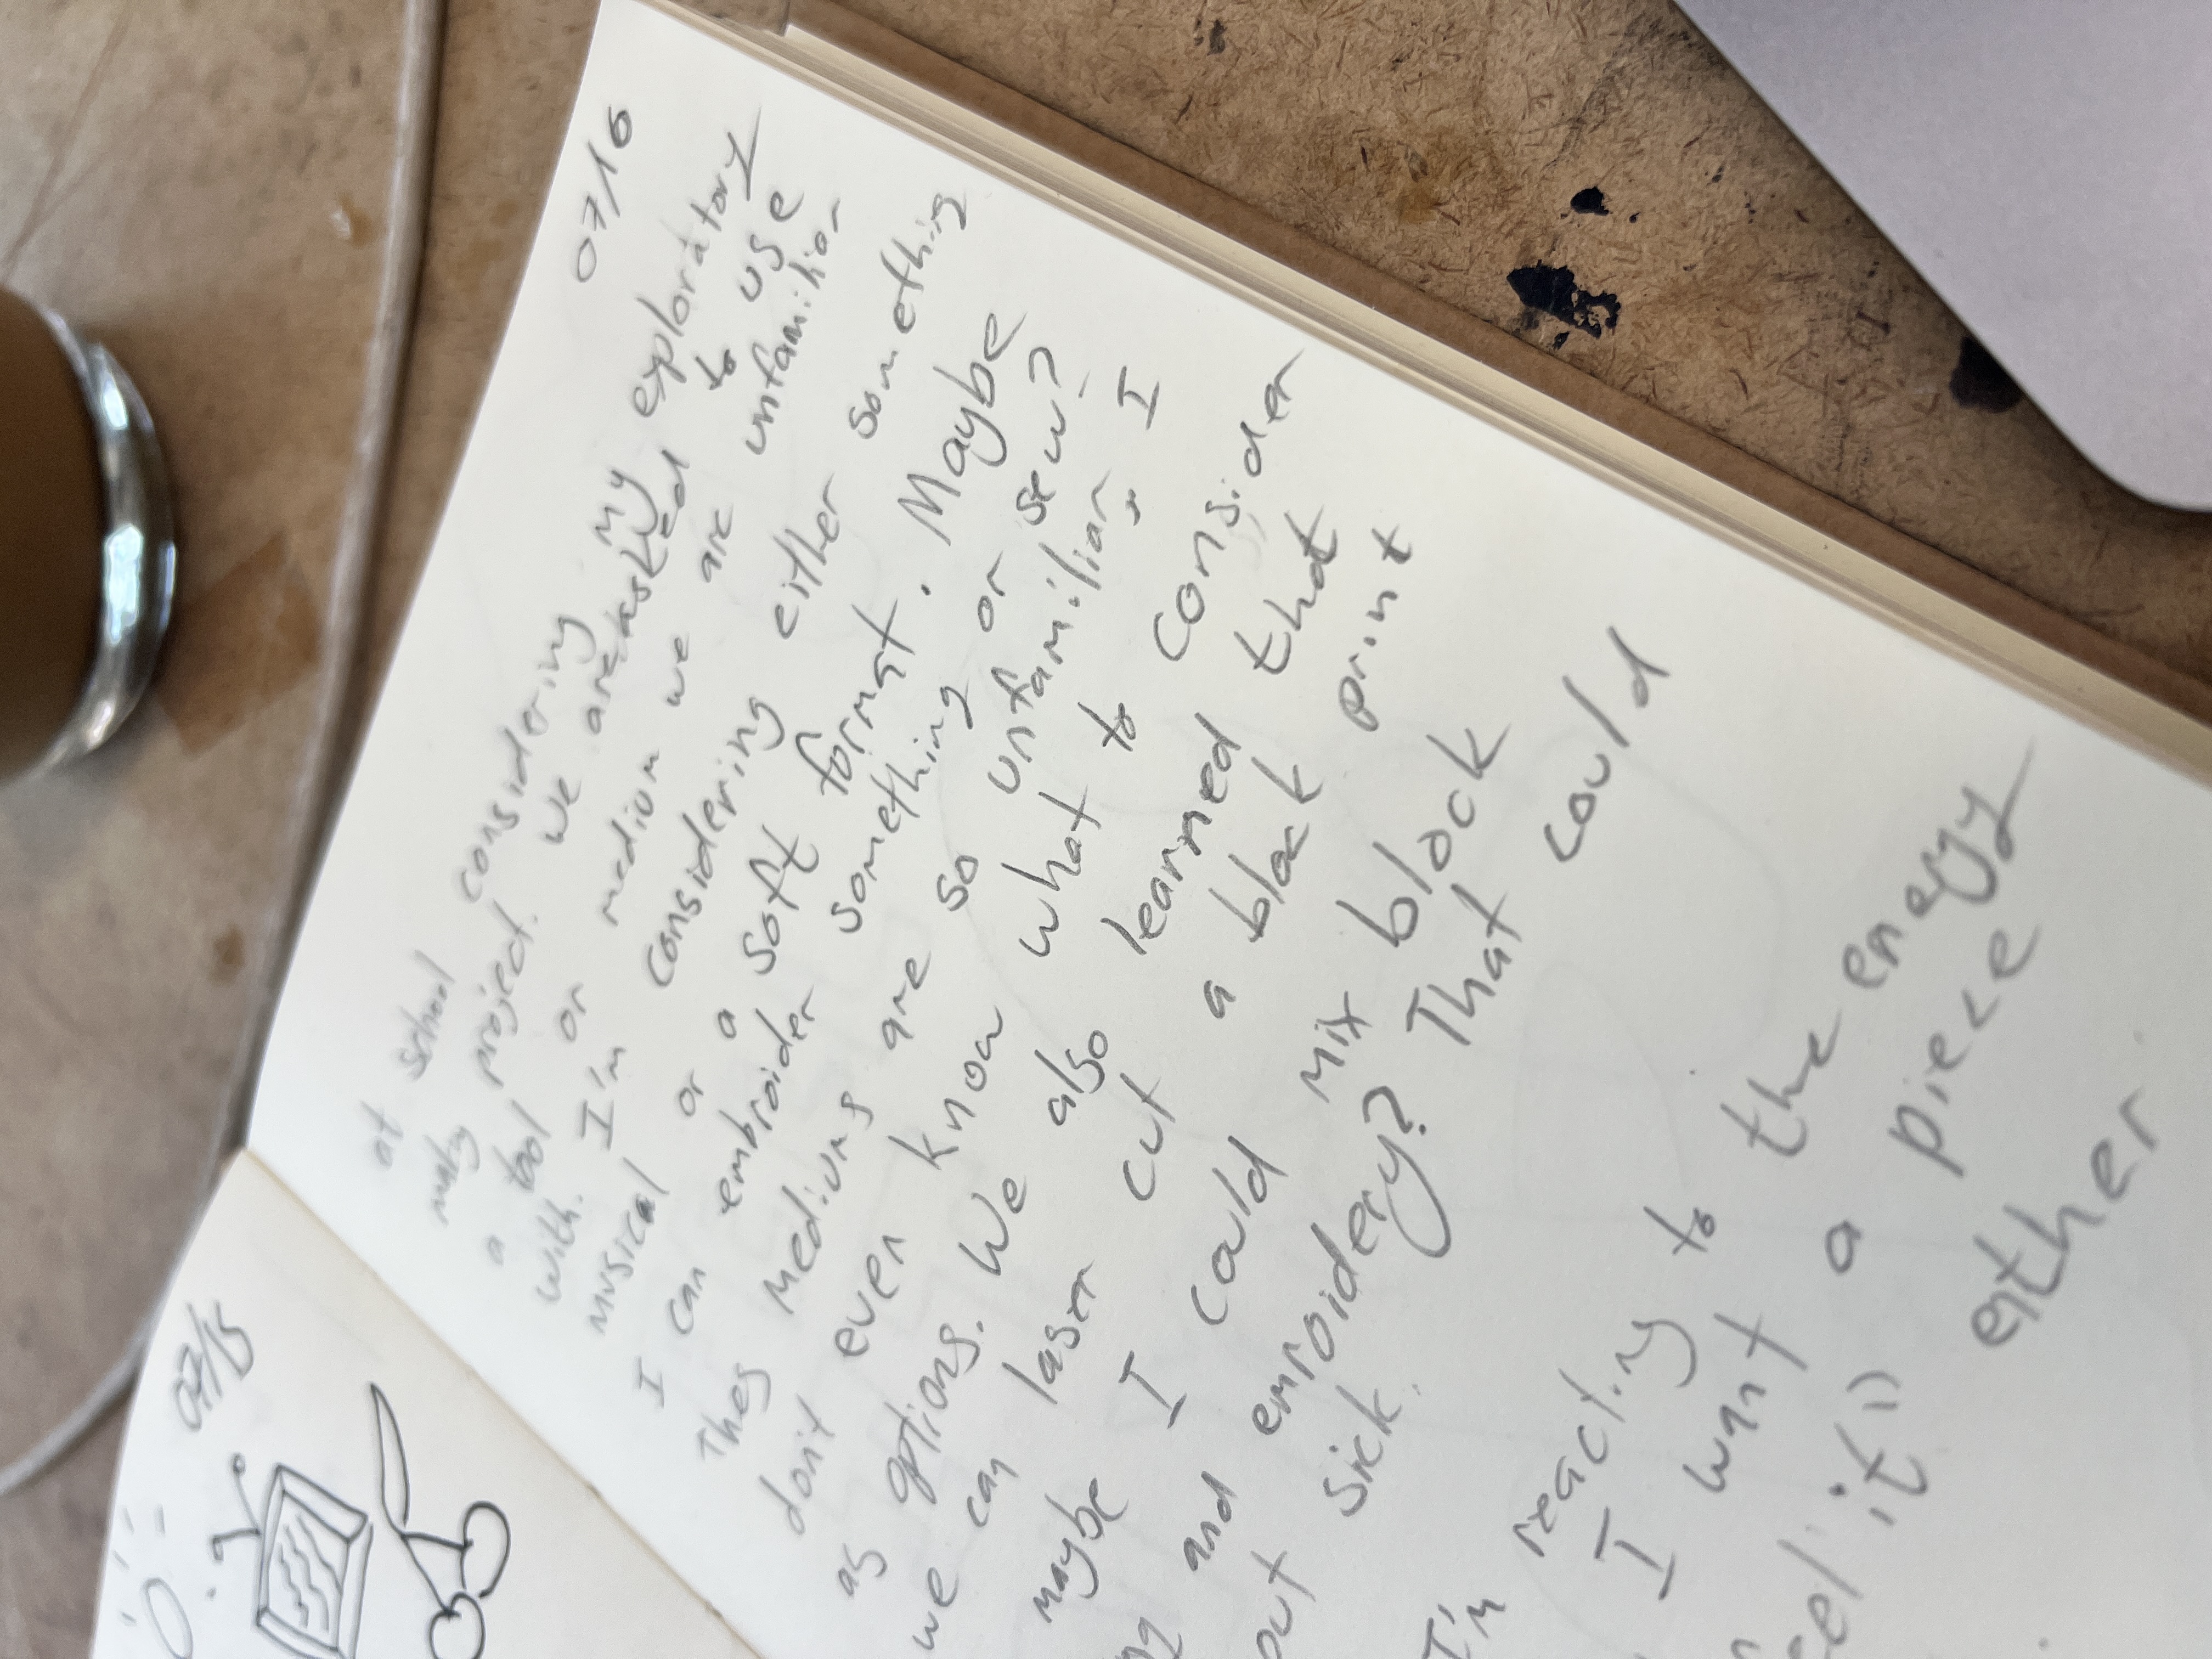 07/15
07/16
at school considering my exploratory
project. we are asked to use
a tool or medium we are unfamiliar
with. I'm considering either something
musical or a soft format. Maybe
I can embroider something or sew?
Thes mediums are so unfamiliar, I
don't even know what to consider
as options. We also learned that
we can laser cut a block print
maybe I could mix block
and emroidery? That could
out sick.
I'm reacting to the energy
I want a piece
it"
either